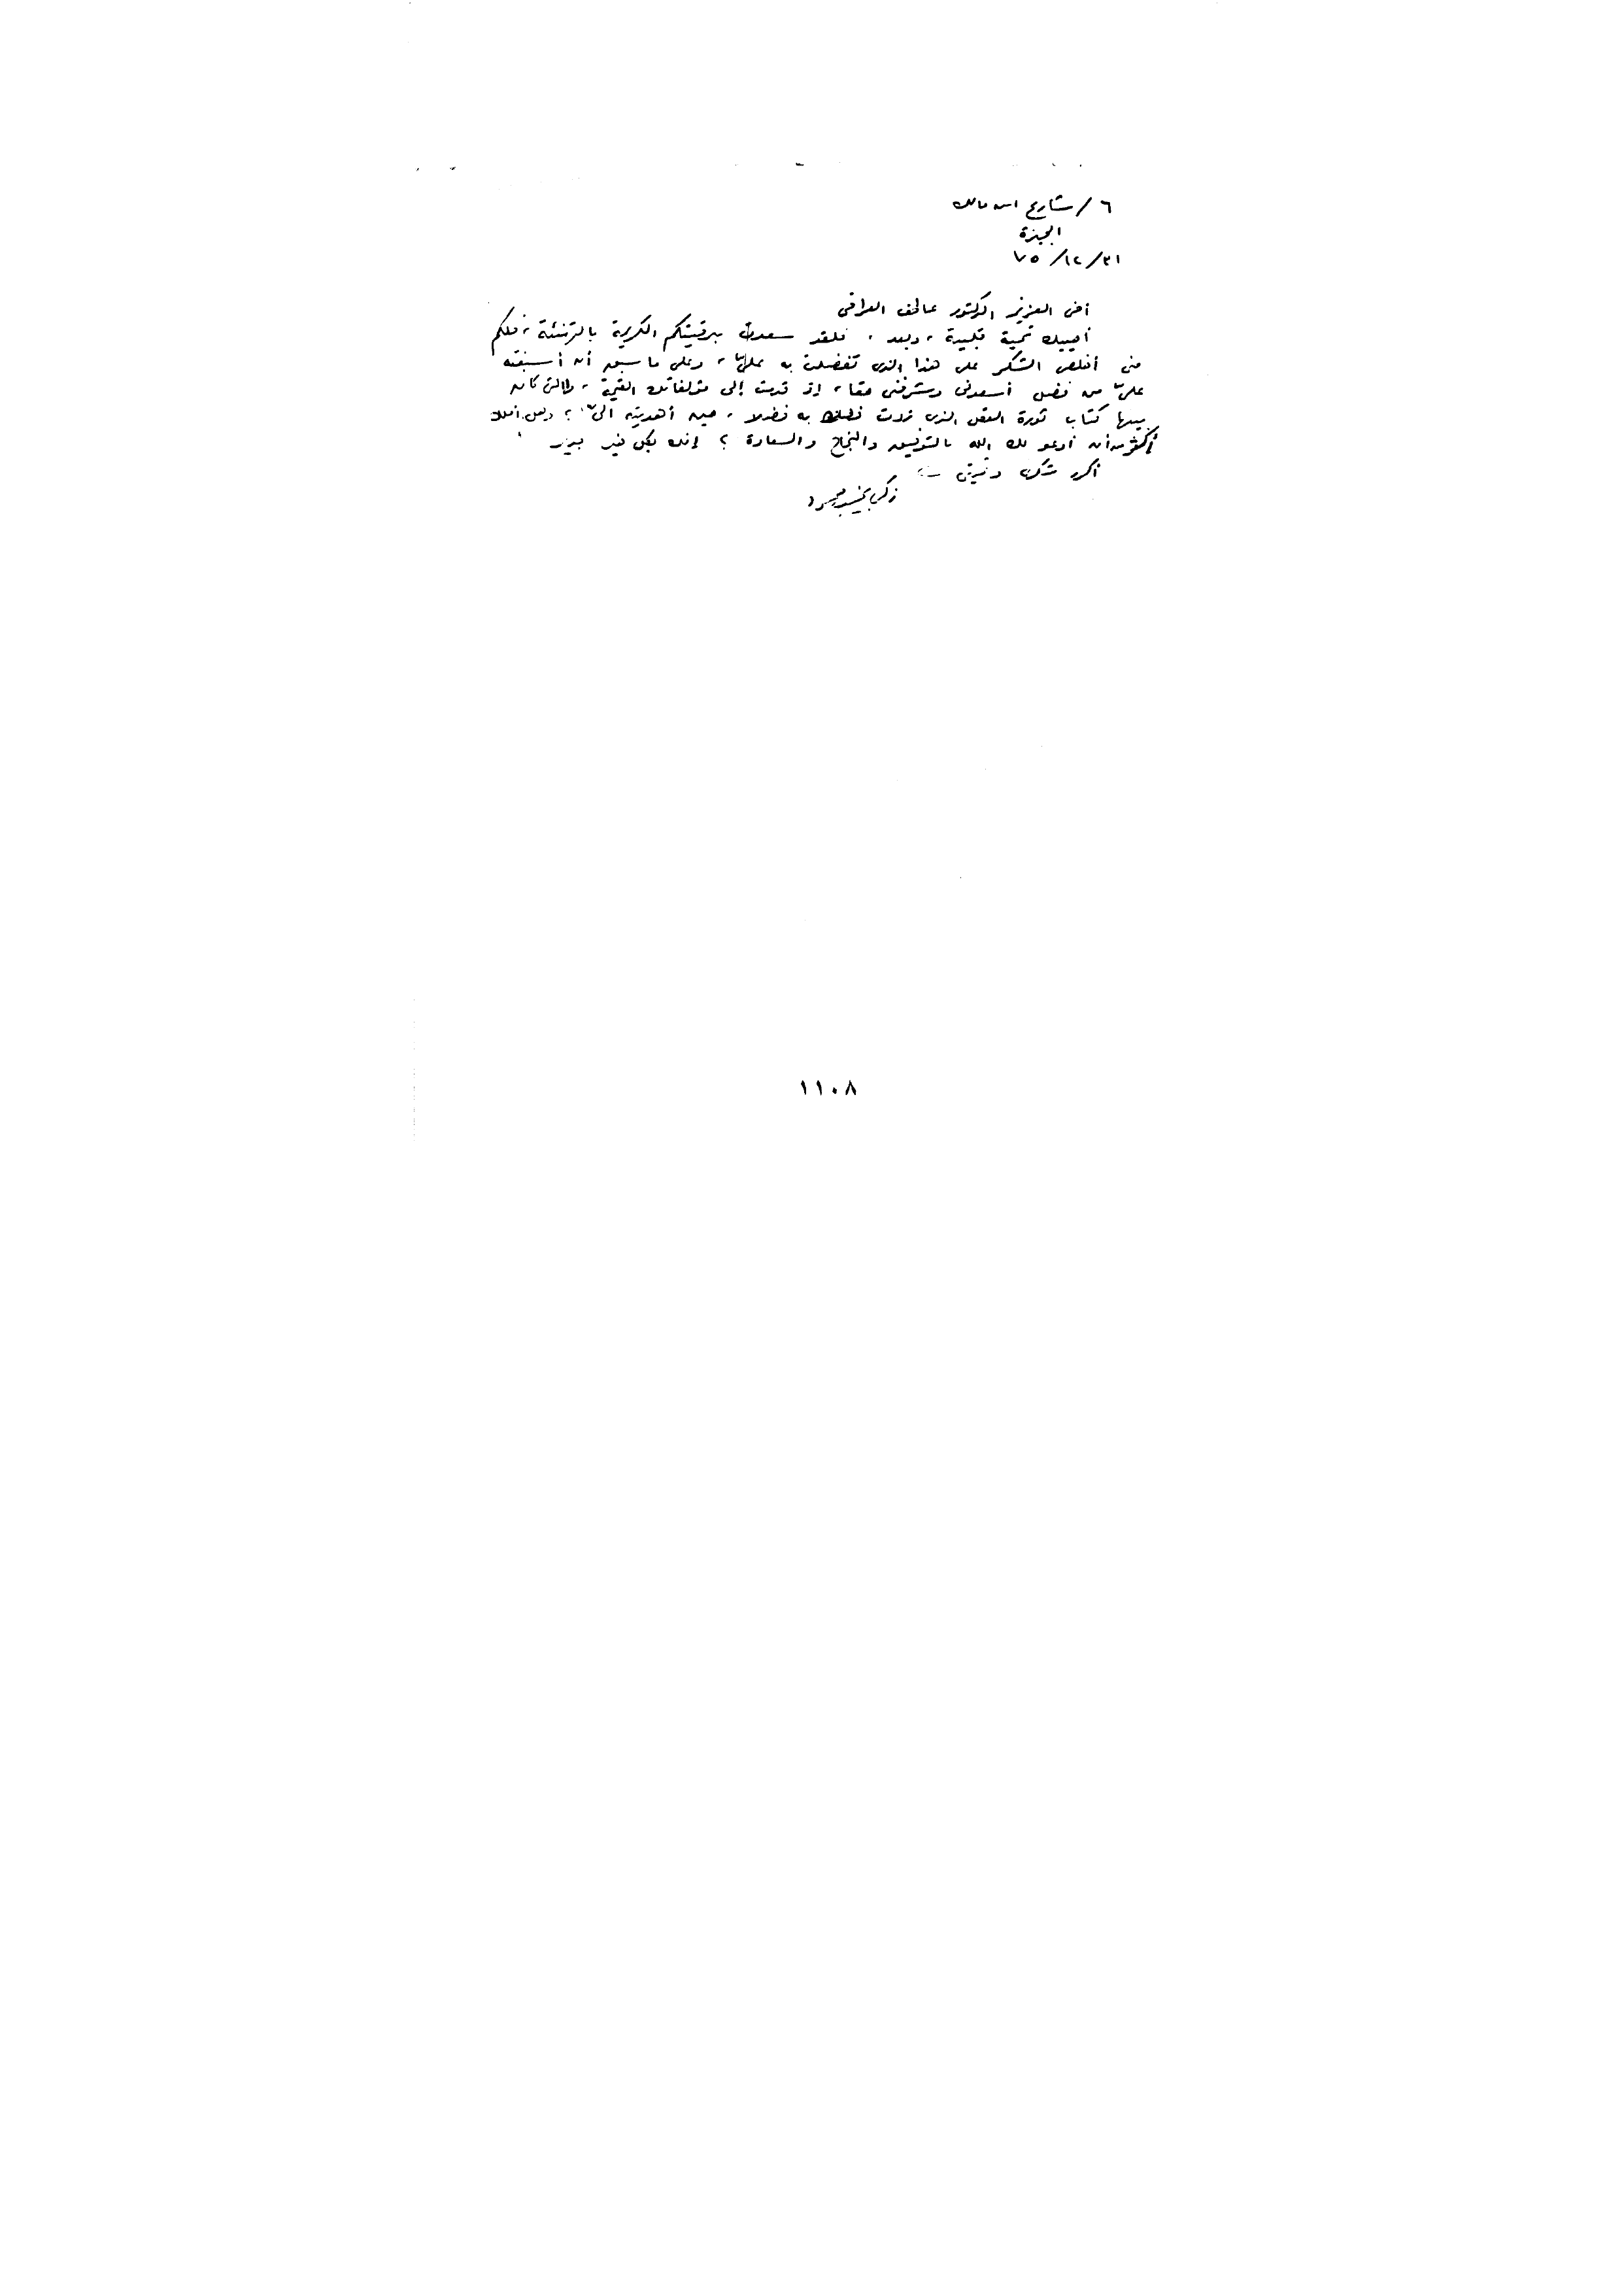 ٦ / شارع ابن مالك
الجيزة
٣١ / ١٢ / ٧٥
أخى العزيز الدكتور عاطف العراقى
أحييك تحية قلبية ، وبعد ، فلقد سعدت ببرقيتكم الكريمة بالتهنئة ، فلكم
منى أخلص الشكر على هذا الذى تفضلت به علىّ ، وعلى ما سبق أن أسبغته
علىّ من فضل أسعدنى وشرفنى حقا ، إذ قدمت إلى مؤلفاتك القيمة ، والتى كان
بينها كتاب ثورة العقل الذى زدت فضلك به فضلا ، حين أهديته الىّ ؛ وهل أملك
أكثر من أن أدعو لك الله بالتوفيق والنجاح والسعادة ؟ إنك بكل خير جدير
أكرر شكرى وتحيتى
زكى نجيب محمود
١١٠٨